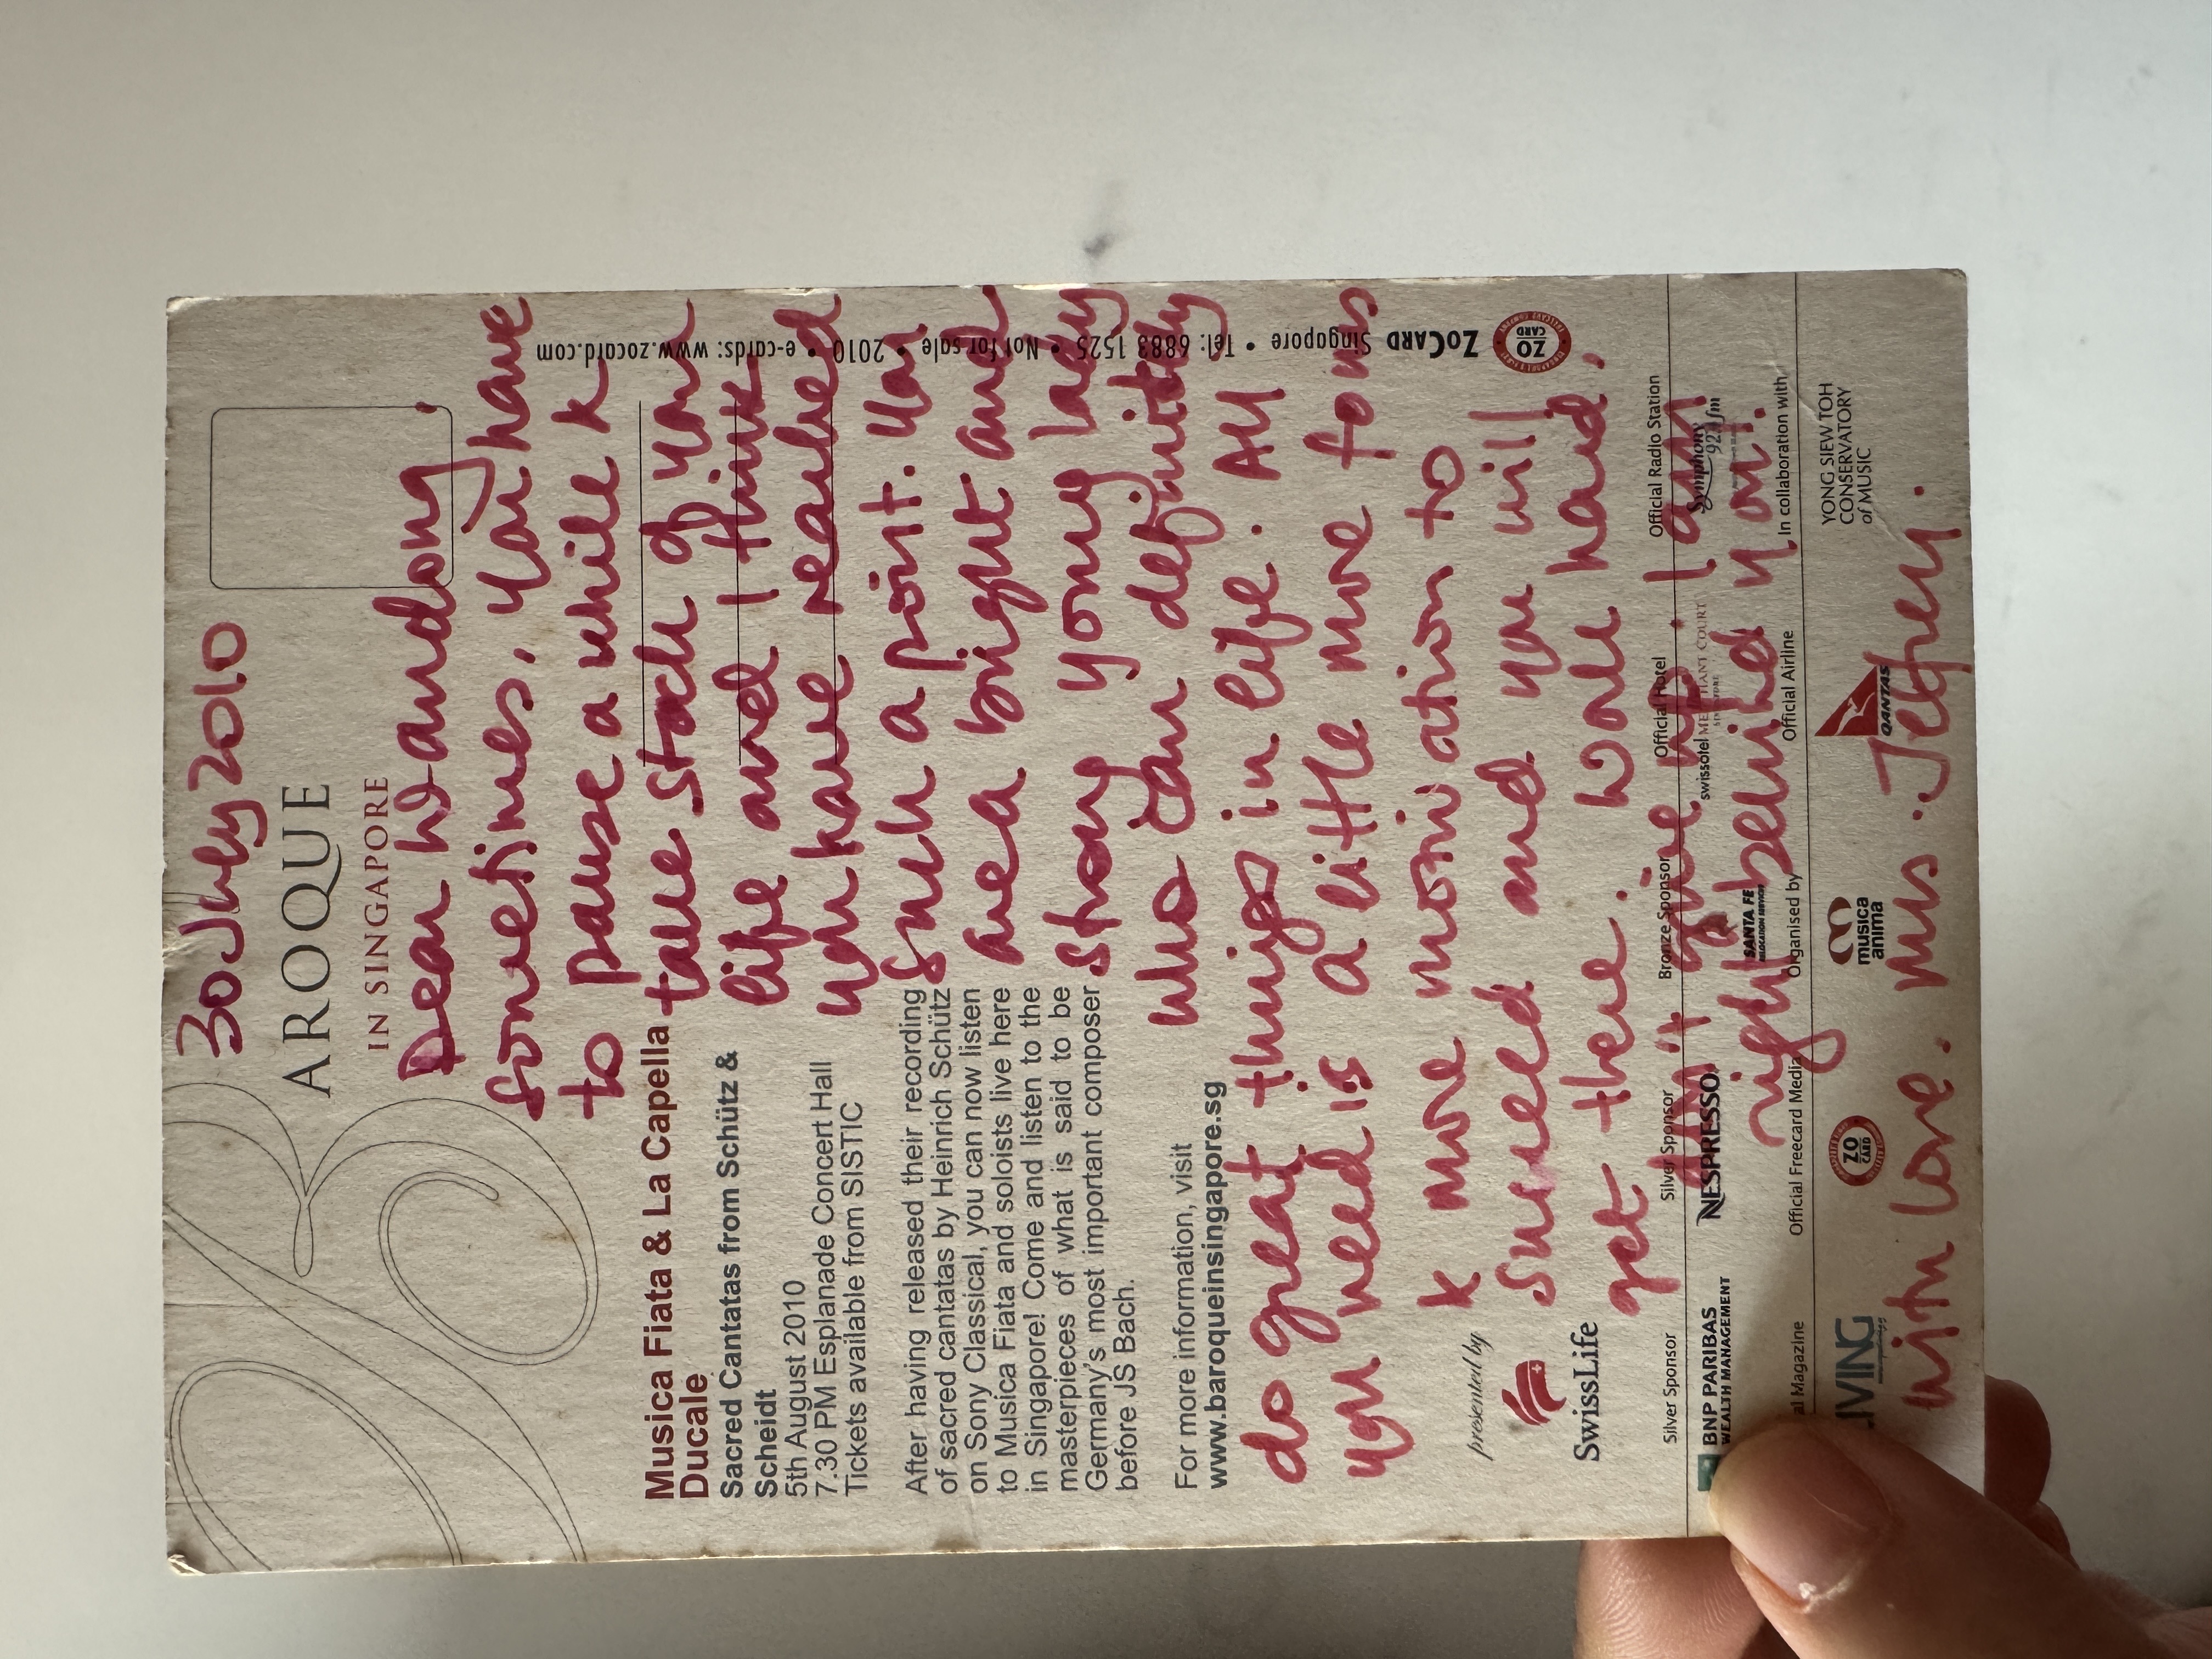 30 July 2010
BAROQUE
IN SINGAPORE
Dear Wandong
Sometimes, you have
to pause a while &
take stock of your
life and I think
you have reached
such a point. You
are a bright and
strong young lady
who can definitely
do great things in life. All
you need is a little more focus
& more motivation to
succeed and you will
get there. Work hard.
Don't give up. I am
right behind you.
With love. Mrs. Jeffrey.
Musica Fiata & La Capella
Ducale
Sacred Cantatas from Schütz &
Scheidt
5th August 2010
7.30 PM Esplanade Concert Hall
Tickets available from SISTIC
After having released their recording
of sacred cantatas by Heinrich Schütz
on Sony Classical, you can now listen
to Musica Fiata and soloists live here
in Singapore! Come and listen to the
masterpieces of what is said to be
Germany's most important composer
before JS Bach.
For more information, visit
www.baroqueinsingapore.sg
presented by
SwissLife
ZOCARD Singapore • Tel: 6883 1525 • Not for sale • 2010 • e-cards: www.zocard.com
ZO
CARD
Silver Sponsor
BNP PARIBAS
WEALTH MANAGEMENT
Silver Sponsor
NESPRESSO
Bronze Sponsor
SANTA FE
RELOCATION SERVICES
Official Hotel
swissotel MERCHANT COURT
SINGAPORE
Official Radio Station
Symphony
92.4fm
al Magazine
LIVING
Official Freecard Media
ZO
CARD
Organised by
musica
anima
Official Airline
QANTAS
In collaboration with
YONG SIEW TOH
CONSERVATORY
of MUSIC